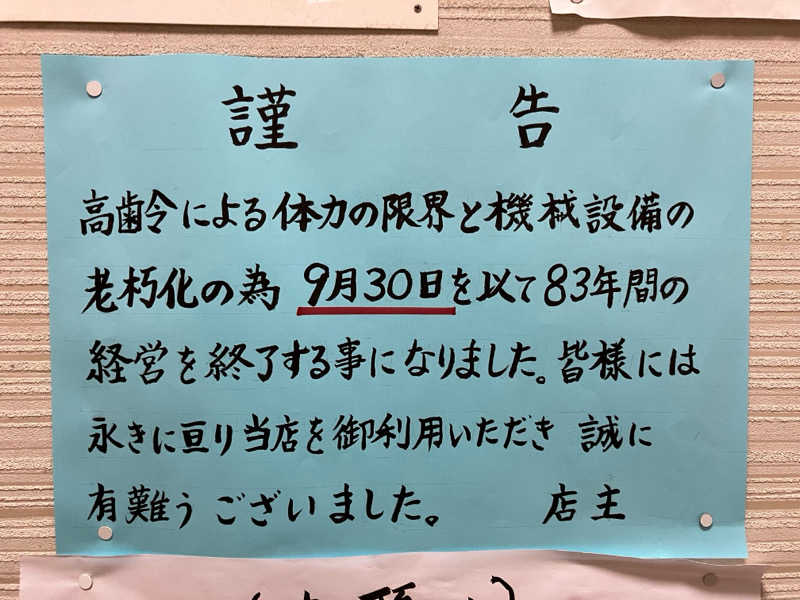 謹 告
高齢令による体力の限界と機械設備の
老朽化の為 9月30日を以て83年間の
経営を終了する事になりました。皆様には
永きに亘り当店を御利用いただき 誠に
有難うございました。 店主